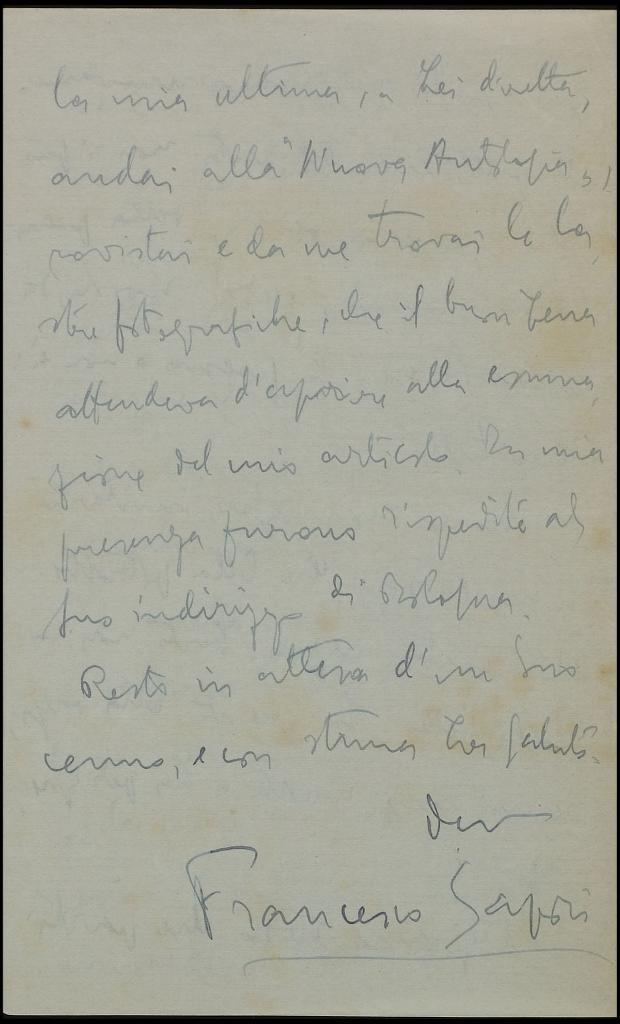 la mia ultima, a Lei diretta,
andai alla "Nuova Antologia",
rovistai e da me trovai le la
stre fotografiche, che il buon
attendeva d'unire alla
zione del mio articolo. In mia
presenza furono rispedite al
Suo indirizzo di Bologna.
Resto in attesa d'un Suo
cenno, e con stima La saluto.
Dev
Francesco Sapori